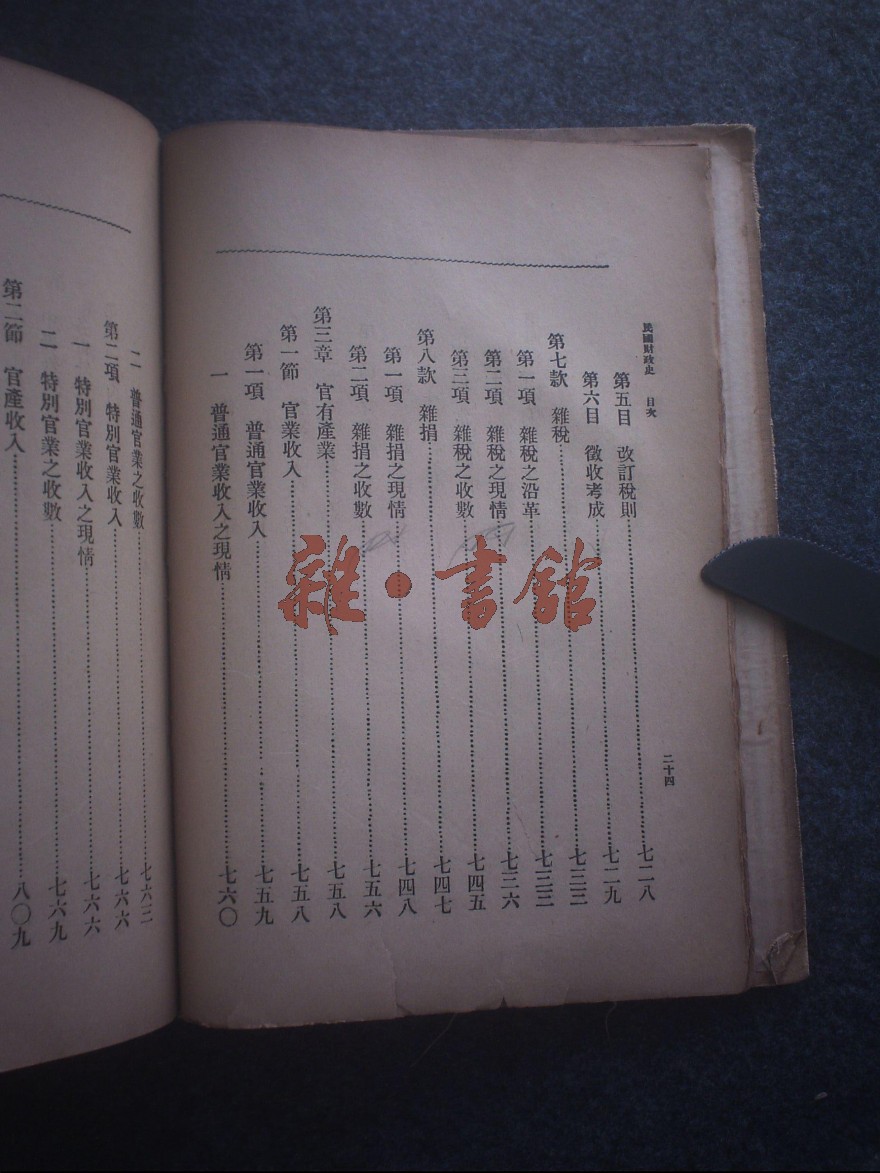 民國財政史 目次 二十四
第五目 改訂稅則……七二八
第六目 徵收考成……七二九
第七款 雜稅……七三三
第一項 雜稅之沿革……七三三
第二項 雜稅之現情……七三六
第三項 雜稅之收數……七四五
第八款 雜捐……七四七
第一項 雜捐之現情……七四八
第二項 雜捐之收數……七五六
第三章 官有產業……七五八
第一節 官業收入……七五八
第一項 普通官業收入……七五九
一 普通官業收入之現情……七六〇
二 普通官業之收數……七六三
第二項 特別官業收入……七六六
一 特別官業收入之現情……七六六
二 特別官業之收數……七六九
第二節 官產收入……八〇九
雜·書館